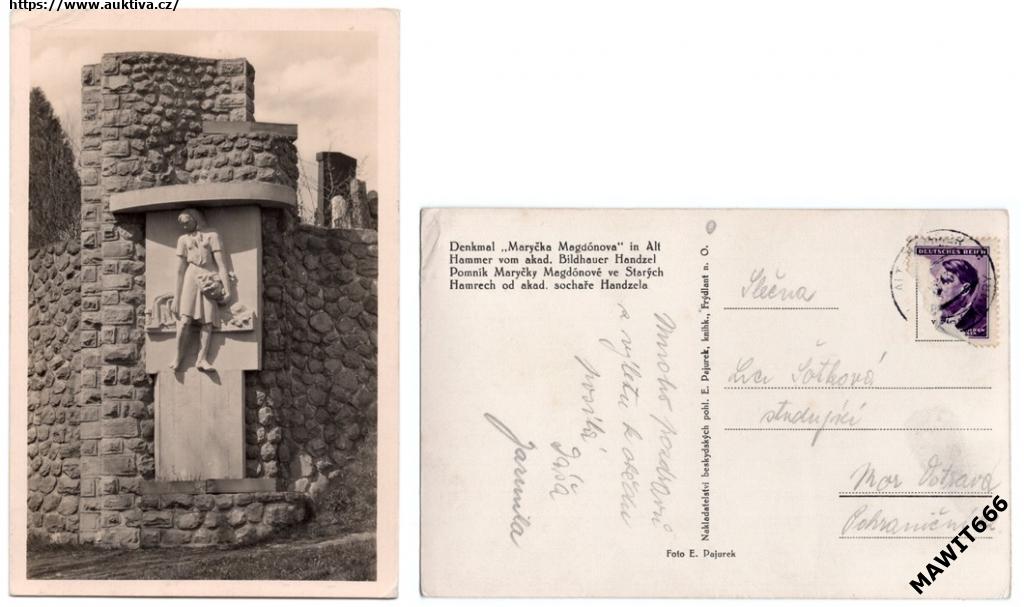 https://www.auktiva.cz/
Denkmal „Maryčka Magdónova" in Alt
Hammer vom akad. Bildhauer Handzel
Pomník Maryčky Magdónové ve Starých
Hamrech od akad. sochaře Handzela
Mnoho pozdravů
z výletu
posílá
Dáša
Jarmila
Foto E. Pajurek
Nakladatelství beskydských pohl. E. Pajurek, knihk., Frýdlant n. O.
DEUTSCHES REICH
Slečna
Šotková
studující
Mor Ostrava
Pohraniční
MAWIT666